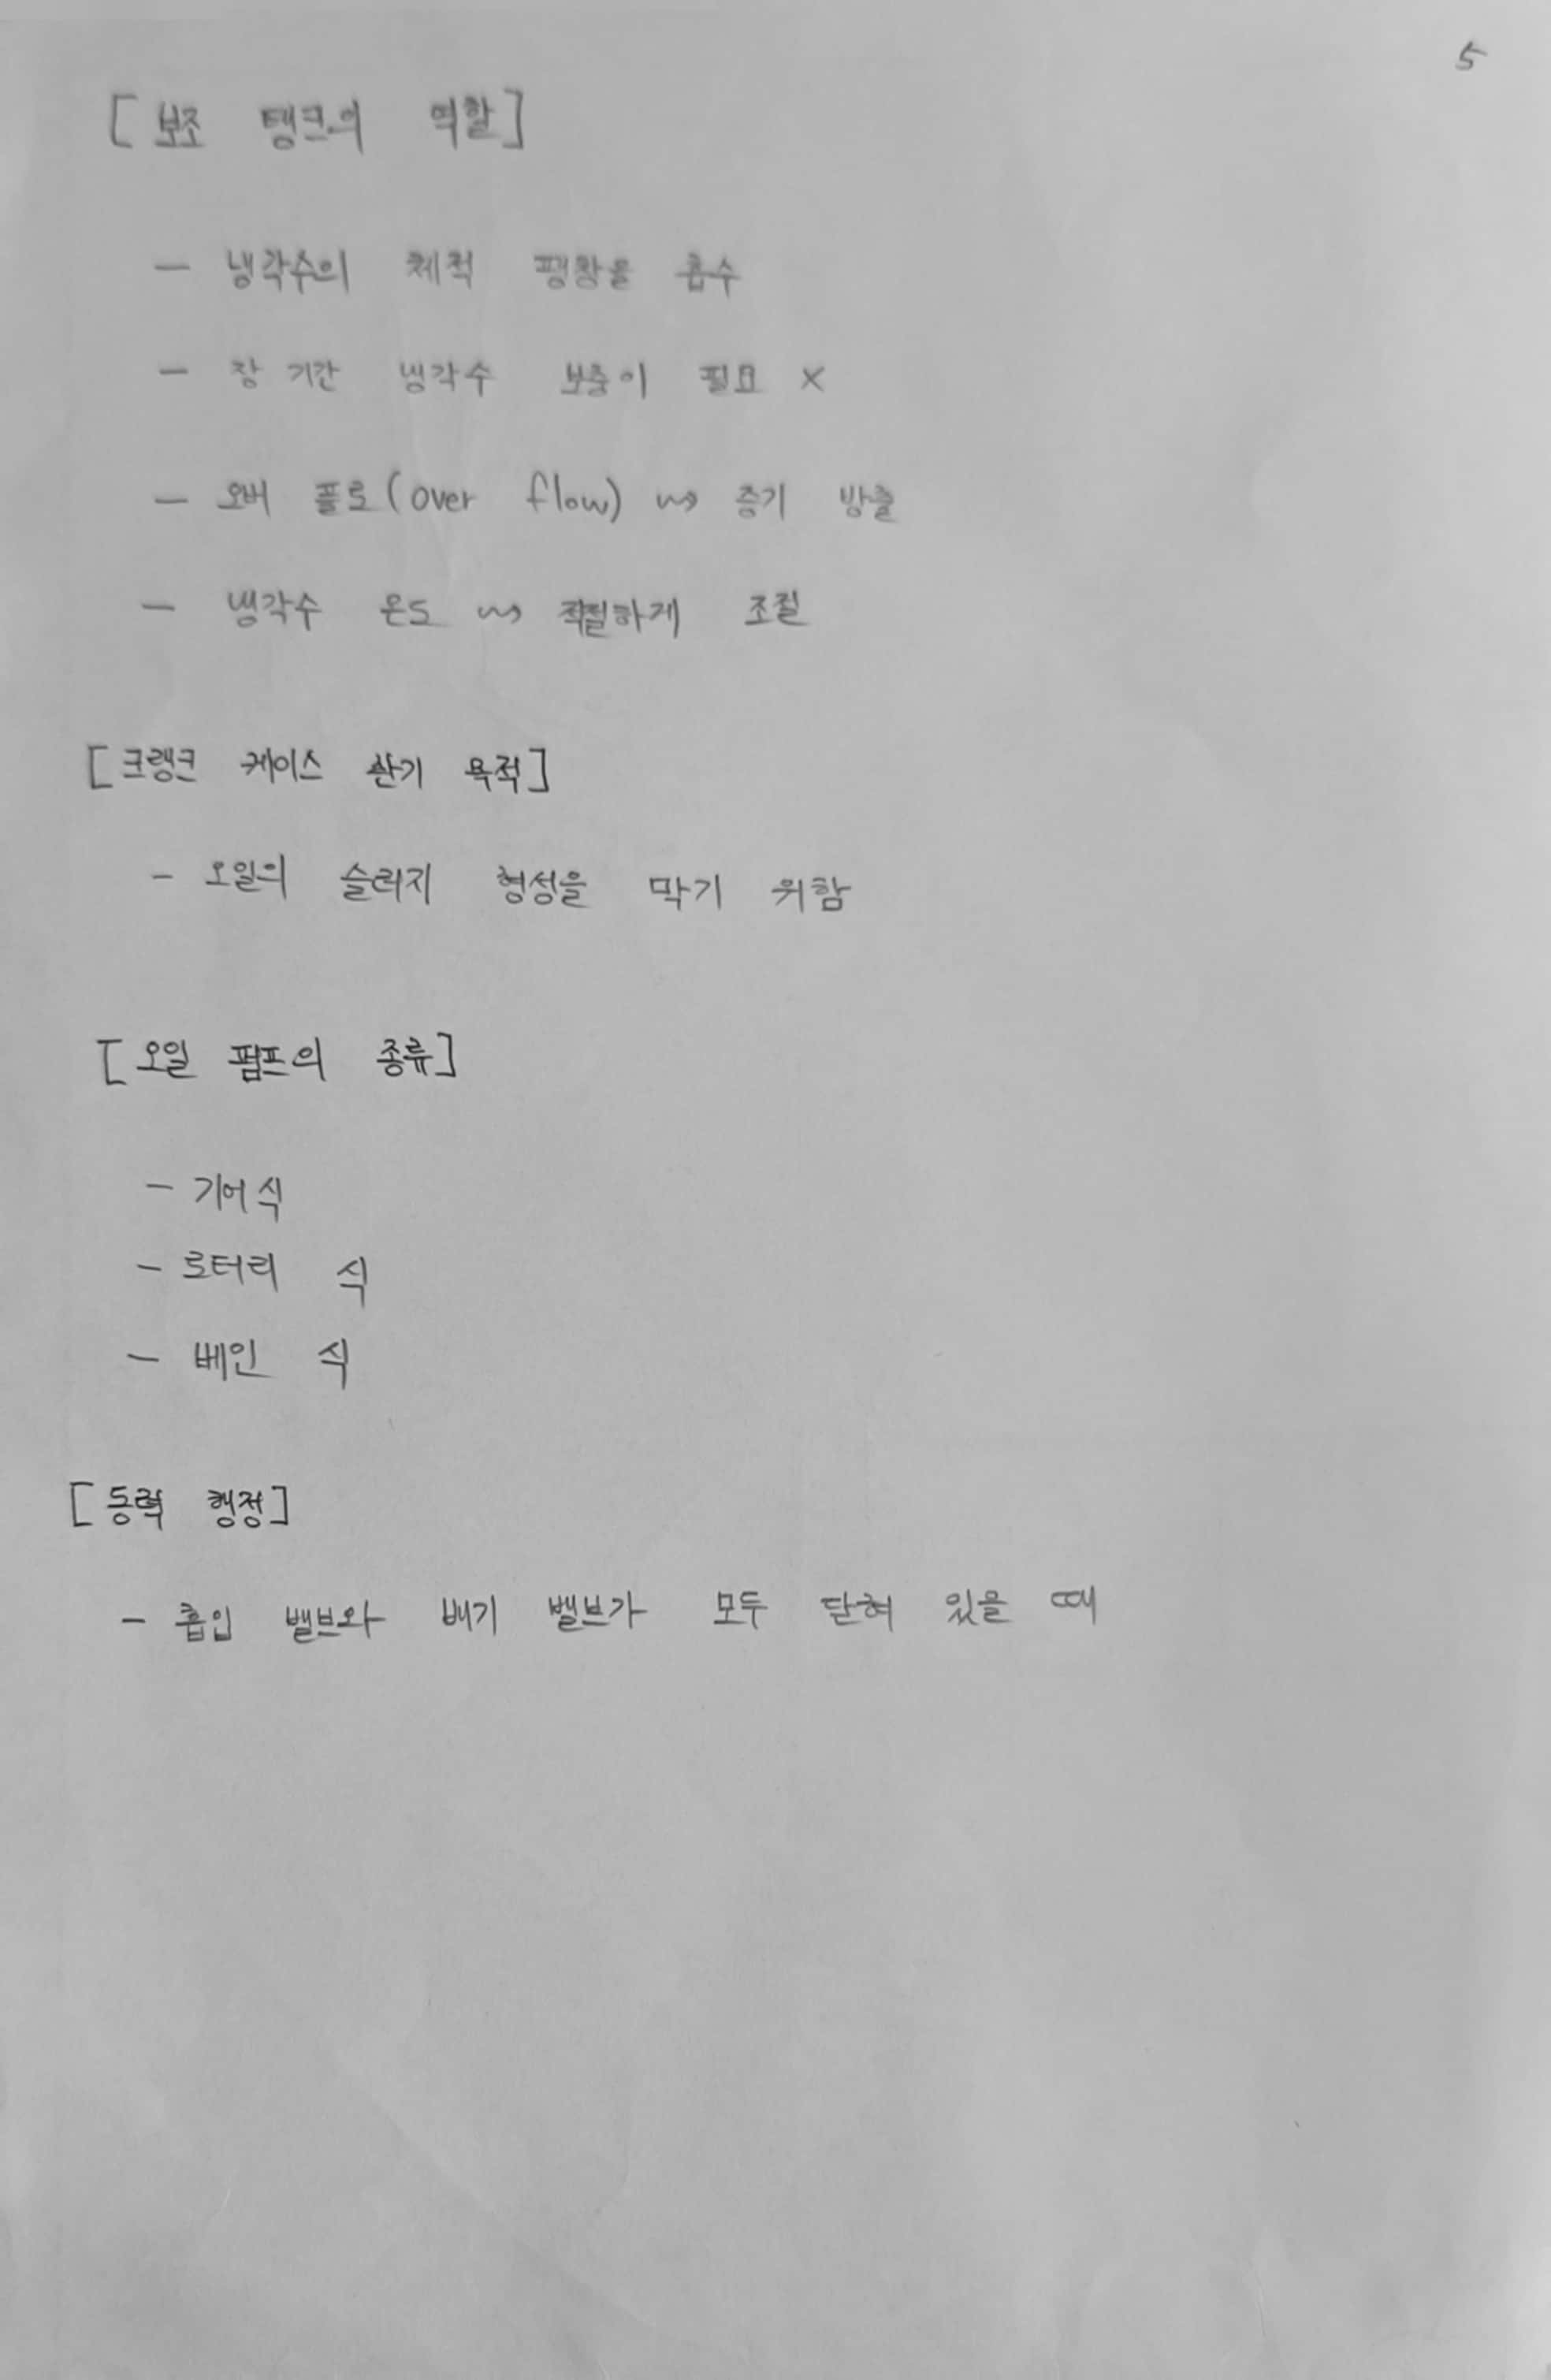 5
[보조 탱크의 역할]
- 냉각수의 체적 팽창을 흡수
- 장 기간 냉각수 보충이 필요 ×
- 오버 플로(over flow) ⇝ 증기 방출
- 냉각수 온도 ⇝ 적절하게 조절
[크랭크 케이스 환기 목적]
- 오일의 슬러지 형성을 막기 위함
[오일 펌프의 종류]
- 기어식
- 로터리 식
- 베인 식
[동력 행정]
- 흡입 밸브와 배기 밸브가 모두 닫혀 있을 때